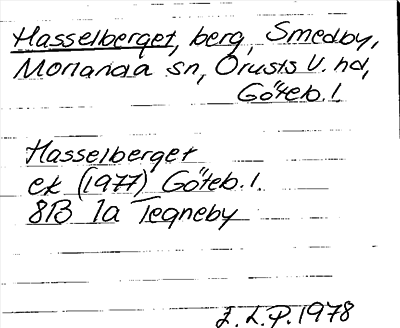 Hasselberget, berg, Smedby,
Morlanda sn, Orusts V. hd,
Göteb. l.
Hasselberget
ek (1977) Göteb. l.
8B 1a Tegneby
E.L.P. 1978